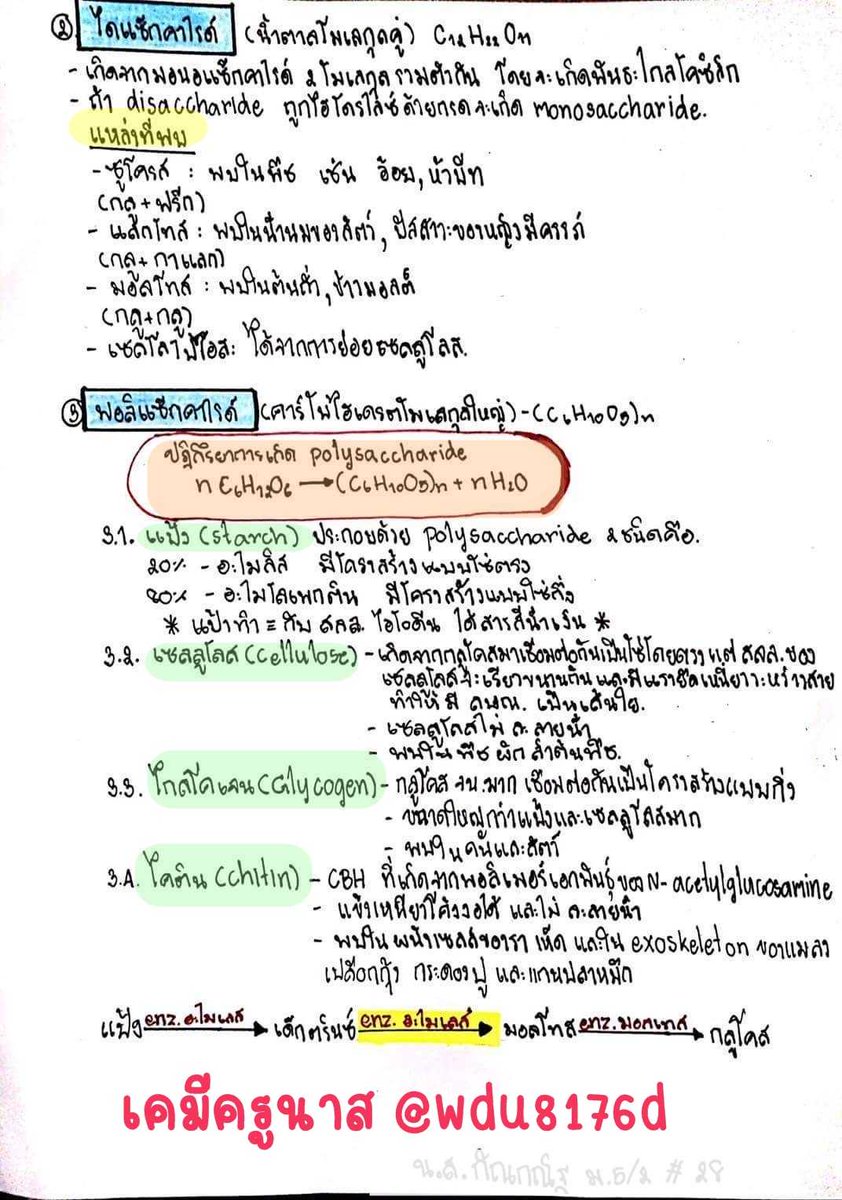 ② ไดแซ็กคาไรด์ (น้ำตาลโมเลกุลคู่) C12H22O11
- เกิดจากมอนอแซ็กคาไรด์ 2 โมเลกุลรวมตัวกัน โดยจะเกิดพันธะไกลโคซิดิก
- ถ้า disaccharide ถูกไฮโดรไลซ์ด้วยกรดจะเกิด monosaccharide.
แหล่งที่พบ
- ซูโครส : พบในพืช เช่น อ้อย, หัวบีท
(กลู + ฟรัก)
- แลกโทส : พบในน้ำนมของสัตว์, ปัสสาวะของหญิงมีครรภ์
(กลู + กาแลก)
- มอลโทส : พบในต้นถั่ว, ข้าวมอลต์
(กลู+กลู)
- เซลโลไบโอส: ได้จากการย่อยเซลลูโลส.
③ พอลิแซ็กคาไรด์ (คาร์โบไฮเดรตโมเลกุลใหญ่) - (C6H10O5)n
ปฏิกิริยาการเกิด polysaccharide
n C6H12O6 → (C6H10O5)n + nH2O
3.1. แป้ง (starch) ประกอบด้วย polysaccharide 2 ชนิดคือ.
20% - อะไมโลส มีโครงสร้างแบบโซ่ตรง
80% - อะไมโลเพกติน มีโครงสร้างแบบโซ่กิ่ง
* แป้งทำ ≡ กับ สลล. ไอโอดีน ได้สารสีน้ำเงิน *
3.2. เซลลูโลส (Cellulose) - เกิดจากกลูโคสมาเชื่อมต่อกันเป็นโซ่โดยตรง แต่ สลล. ของ
เซลลูโลสจะเรียงขนานกัน และมีแรงยึดเหนี่ยวระหว่างสาย
ทำให้ มี คณณ. เป็นเส้นใย.
- เซลลูโลสไม่ละลายน้ำ
- พบใน พืช ผัก ลำต้นพืช.
3.3. ไกลโคเจน (Glycogen) - กลูโคส จน.มาก เชื่อมต่อกันเป็นโครงสร้างแบบกิ่ง
- ขนาดใหญ่กว่าแป้งและเซลลูโลสมาก
- พบใน คนและสัตว์
3.4. ไคติน (chitin) - CBH ที่เกิดจากพอลิเมอร์เอกพันธุ์ของ N-acetylglucosamine
- แข็งเหนียวโค้งงอได้ และไม่ละลายน้ำ
- พบใน ผนังเซลล์ของรา เห็ด และใน exoskeleton ของแมลง
เปลือกกุ้ง กระดองปู และแกนปลาหมึก
แป้ง enz. อะไมเลส → เด็กตรินซ์ enz. อะไมเลส → มอลโทส enz. มอลเทส → กลูโคส
เคมีครูนาส @wdu8176d
น.ส. กัณกณัฐ ม.5/2 # 28